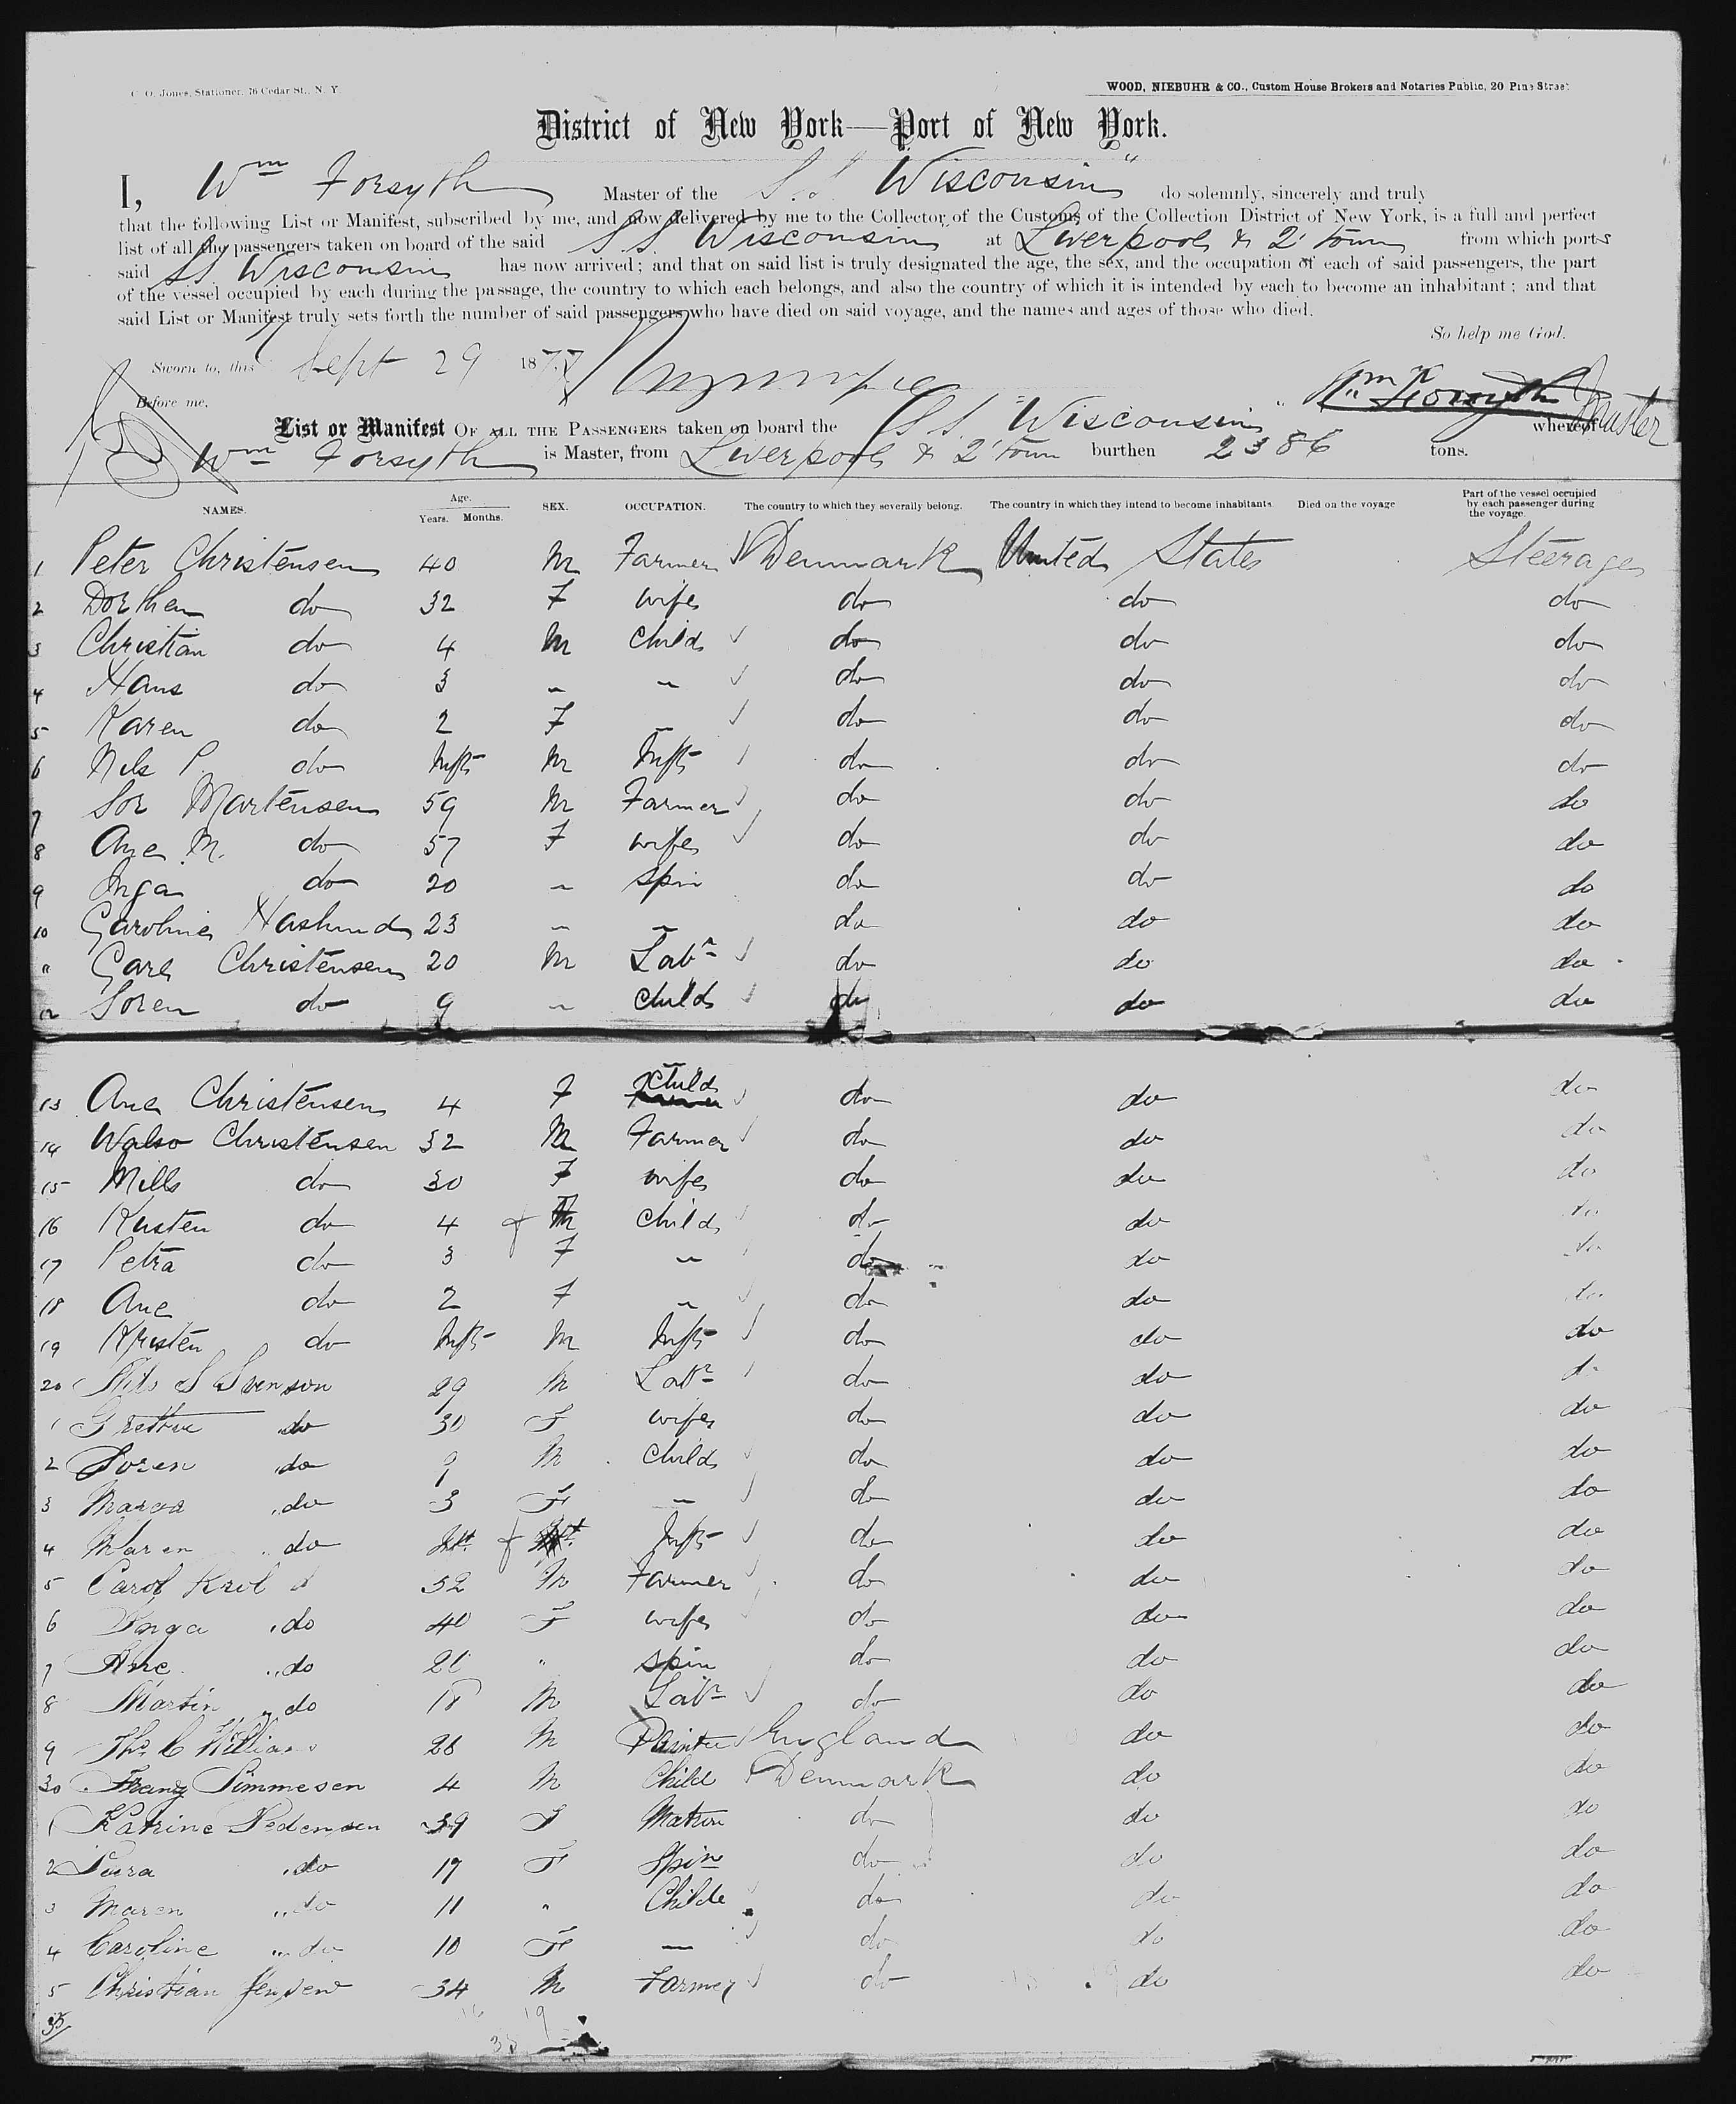 C. O. Jones, Stationer, 76 Cedar St., N. Y.
WOOD, NIEBUHR & CO., Custom House Brokers and Notaries Public, 20 Pine Street
District of New York—Port of New York.
I, Wm Forsyth Master of the S.S. "Wisconsin" do solemnly, sincerely and truly
that the following List or Manifest, subscribed by me, and now delivered by me to the Collector of the Customs of the Collection District of New York, is a full and perfect
list of all the passengers taken on board of the said S S Wisconsin at Liverpool & Q'town from which ports
said SS Wisconsin has now arrived; and that on said list is truly designated the age, the sex, and the occupation of each of said passengers, the part
of the vessel occupied by each during the passage, the country to which each belongs, and also the country of which it is intended by each to become an inhabitant; and that
said List or Manifest truly sets forth the number of said passengers who have died on said voyage, and the names and ages of those who died.
So help me God.
Sworn to, this Sept 29 1877
Wm Forsyth Master
Before me,
List or Manifest OF ALL THE PASSENGERS taken on board the S S "Wisconsin" whereof
Wm Forsyth is Master, from Liverpool & Q'town burthen 2386 tons.
NAMES. Age. Years. Months. SEX. OCCUPATION. The country to which they severally belong. The country in which they intend to become inhabitants. Died on the voyage Part of the vessel occupied by each passenger during the voyage.
1 Peter Christensen 40 M Farmer Denmark United States Steerage
2 Dorthea do 32 F wife do do do
3 Christian do 4 M Child do do do
4 Hans do 3 " " do do do
5 Karen do 2 F " do do do
6 Nils P. do Inft M Inft do do do
7 Sor Martensen 59 M Farmer do do do
8 Ane M. do 57 F wife do do do
9 Inga do 20 " Spin do do do
10 Caroline Haslund 23 " " do do do
11 Carl Christensen 20 M Labr do do do
12 Soren do 9 " Child do do do
13 Ane Christensen 4 F Child do do do
14 Christensen 32 M Farmer do do do
15 Mills do 30 F wife do do do
16 Kisten do 4 F Child do do do
17 Petra do 3 F " do do do
18 Ane do 2 F " do do do
19 Kristen do Inft M Inft do do do
20 Nils S Svenson 29 M Labr do do do
1 do 30 F wife do do do
2 Soren do 9 M Child do do do
3 do 3 F " do do do
4 Maren do Inft F Inft do do do
5 Carol 52 M Farmer do do do
6 Inga do 40 F wife do do do
7 Ane do Spin do do do
8 Martin do 18 M Labr do do do
9 Thos C Williams 28 M Painter England do do
30 Franz Simmesen 4 M Child Denmark do do
1 Katrine Pedensen 39 F Matron do do do
2 do 19 F Spin do do do
3 Maren do 11 " Childe do do do
4 Caroline do 10 F — do do do
5 Christian Jensen 34 M Farmer do do do
35